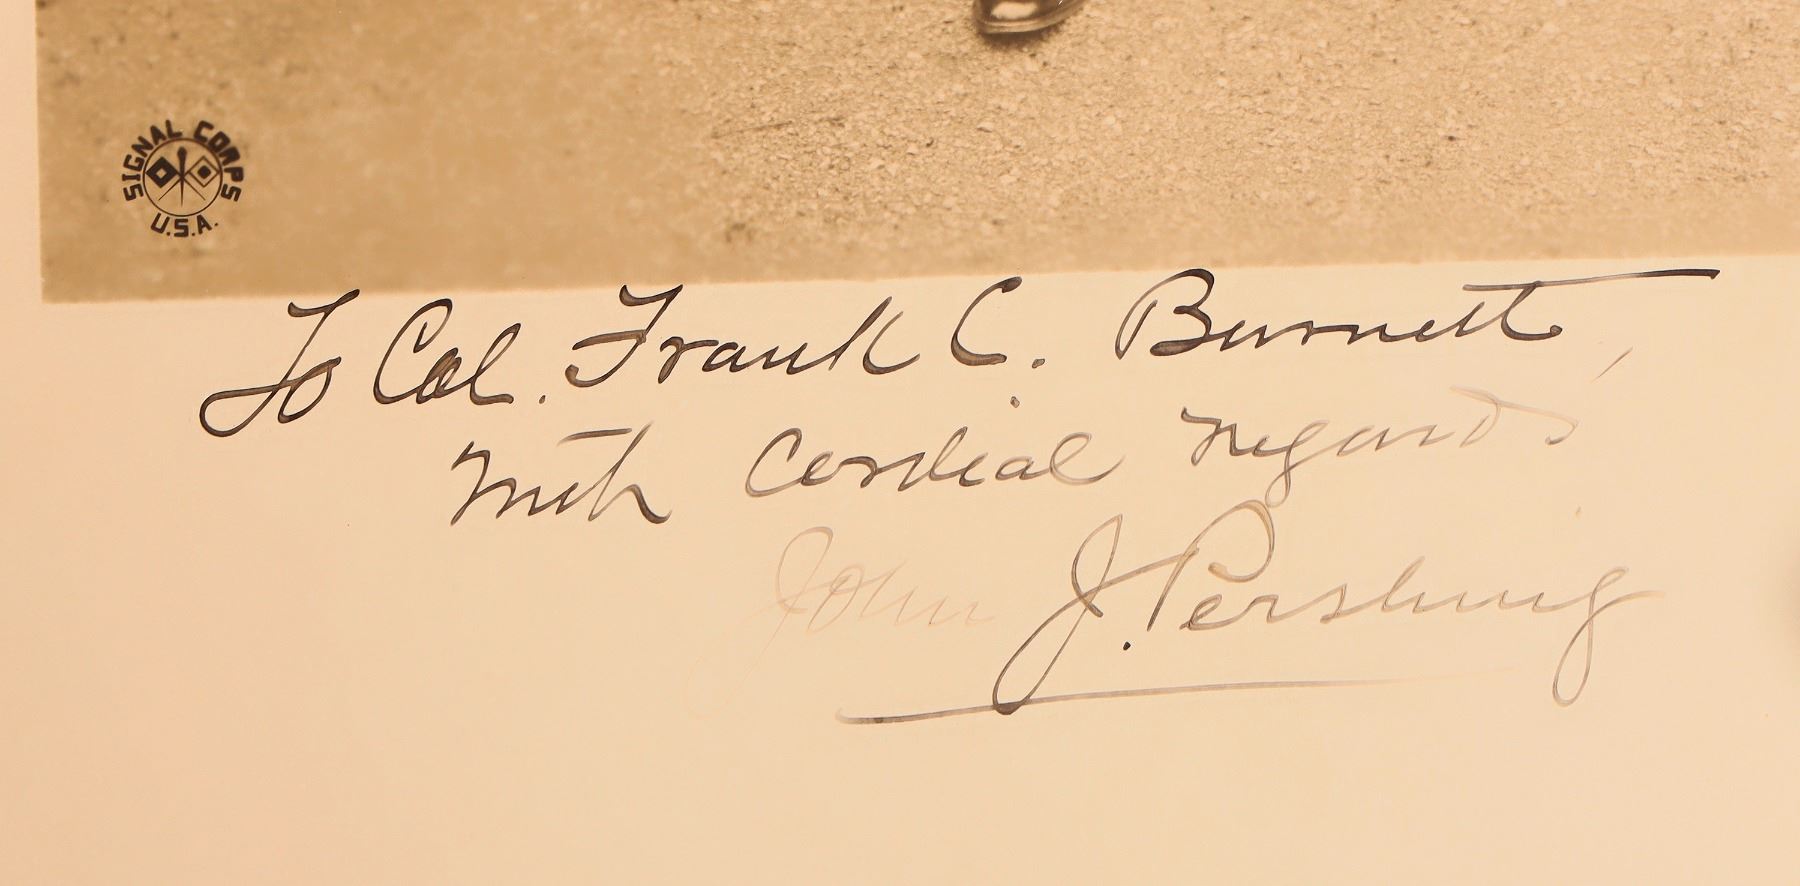 SIGNAL CORPS
U.S.A.
To Col. Frank C. Burnett,
With Cordial regards
John J. Pershing